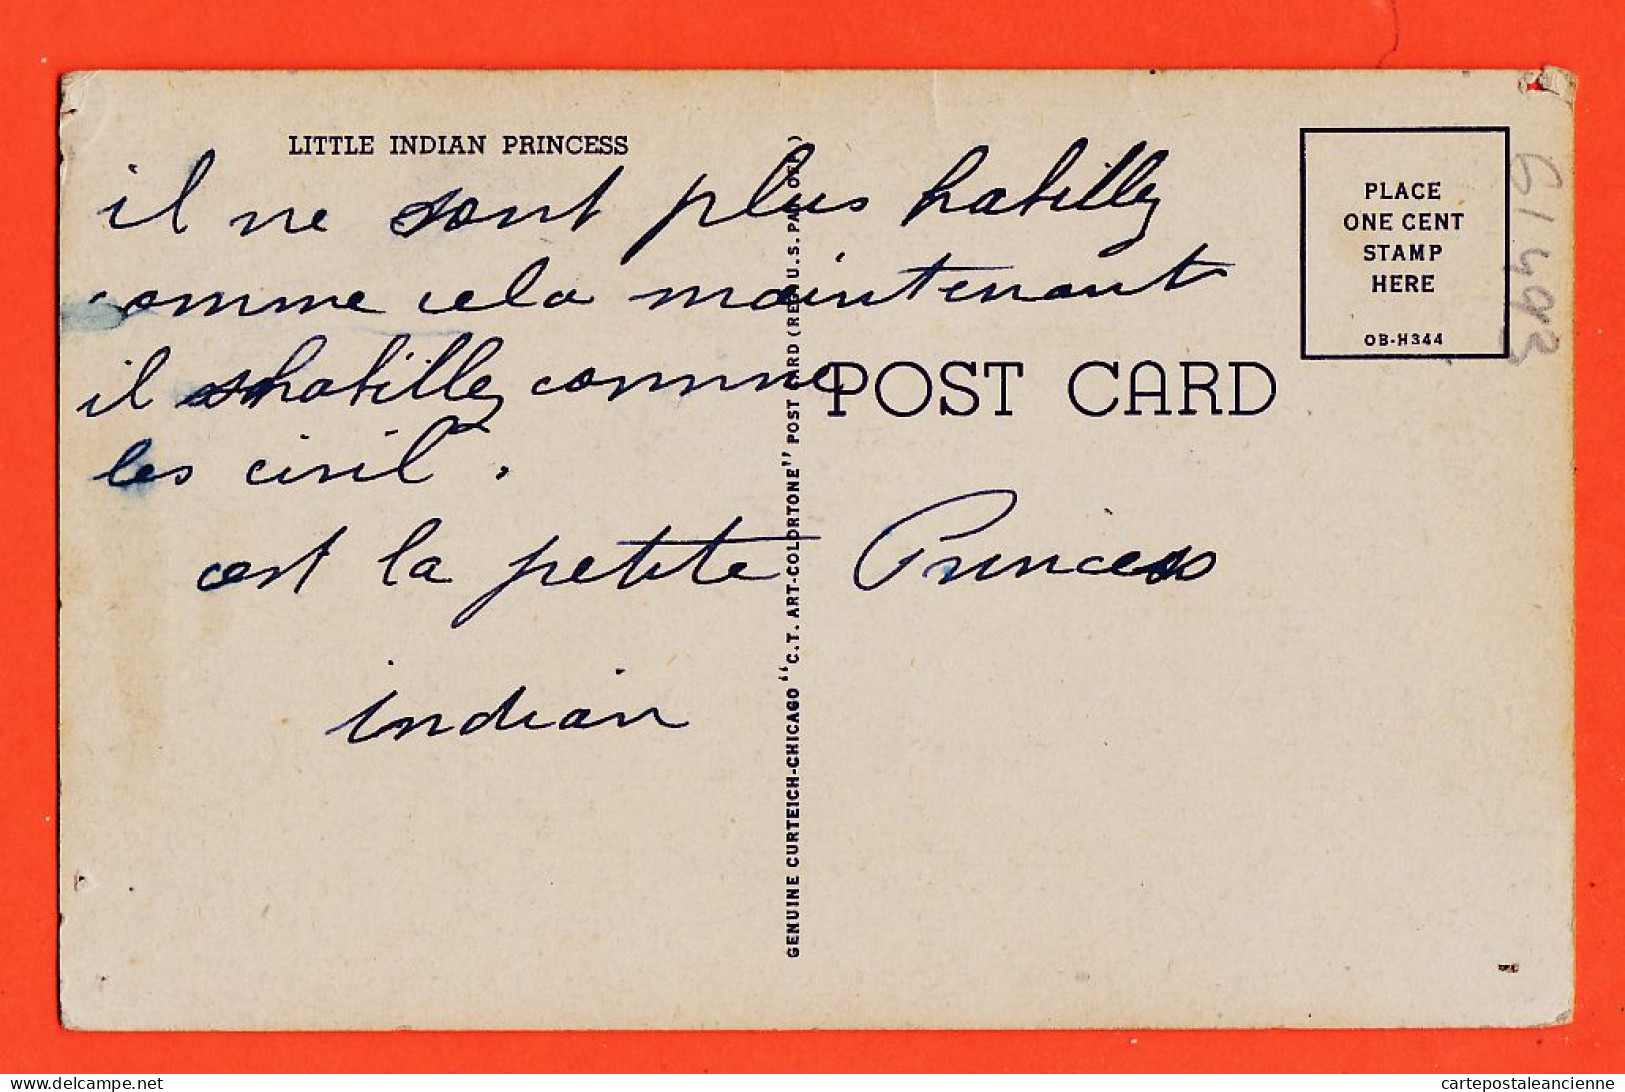 LITTLE INDIAN PRINCESS
il ne sont plus habillez
comme cela maintenant
il shabillez comme
les civil.
cest la petite Princess
indian
GENUINE CURTEICH-CHICAGO "C.T. ART-COLORTONE" POST CARD (REG. U.S. PAT. OFF.)
POST CARD
PLACE
ONE CENT
STAMP
HERE
OB-H344
delcampe.net
cartepostaleancienne